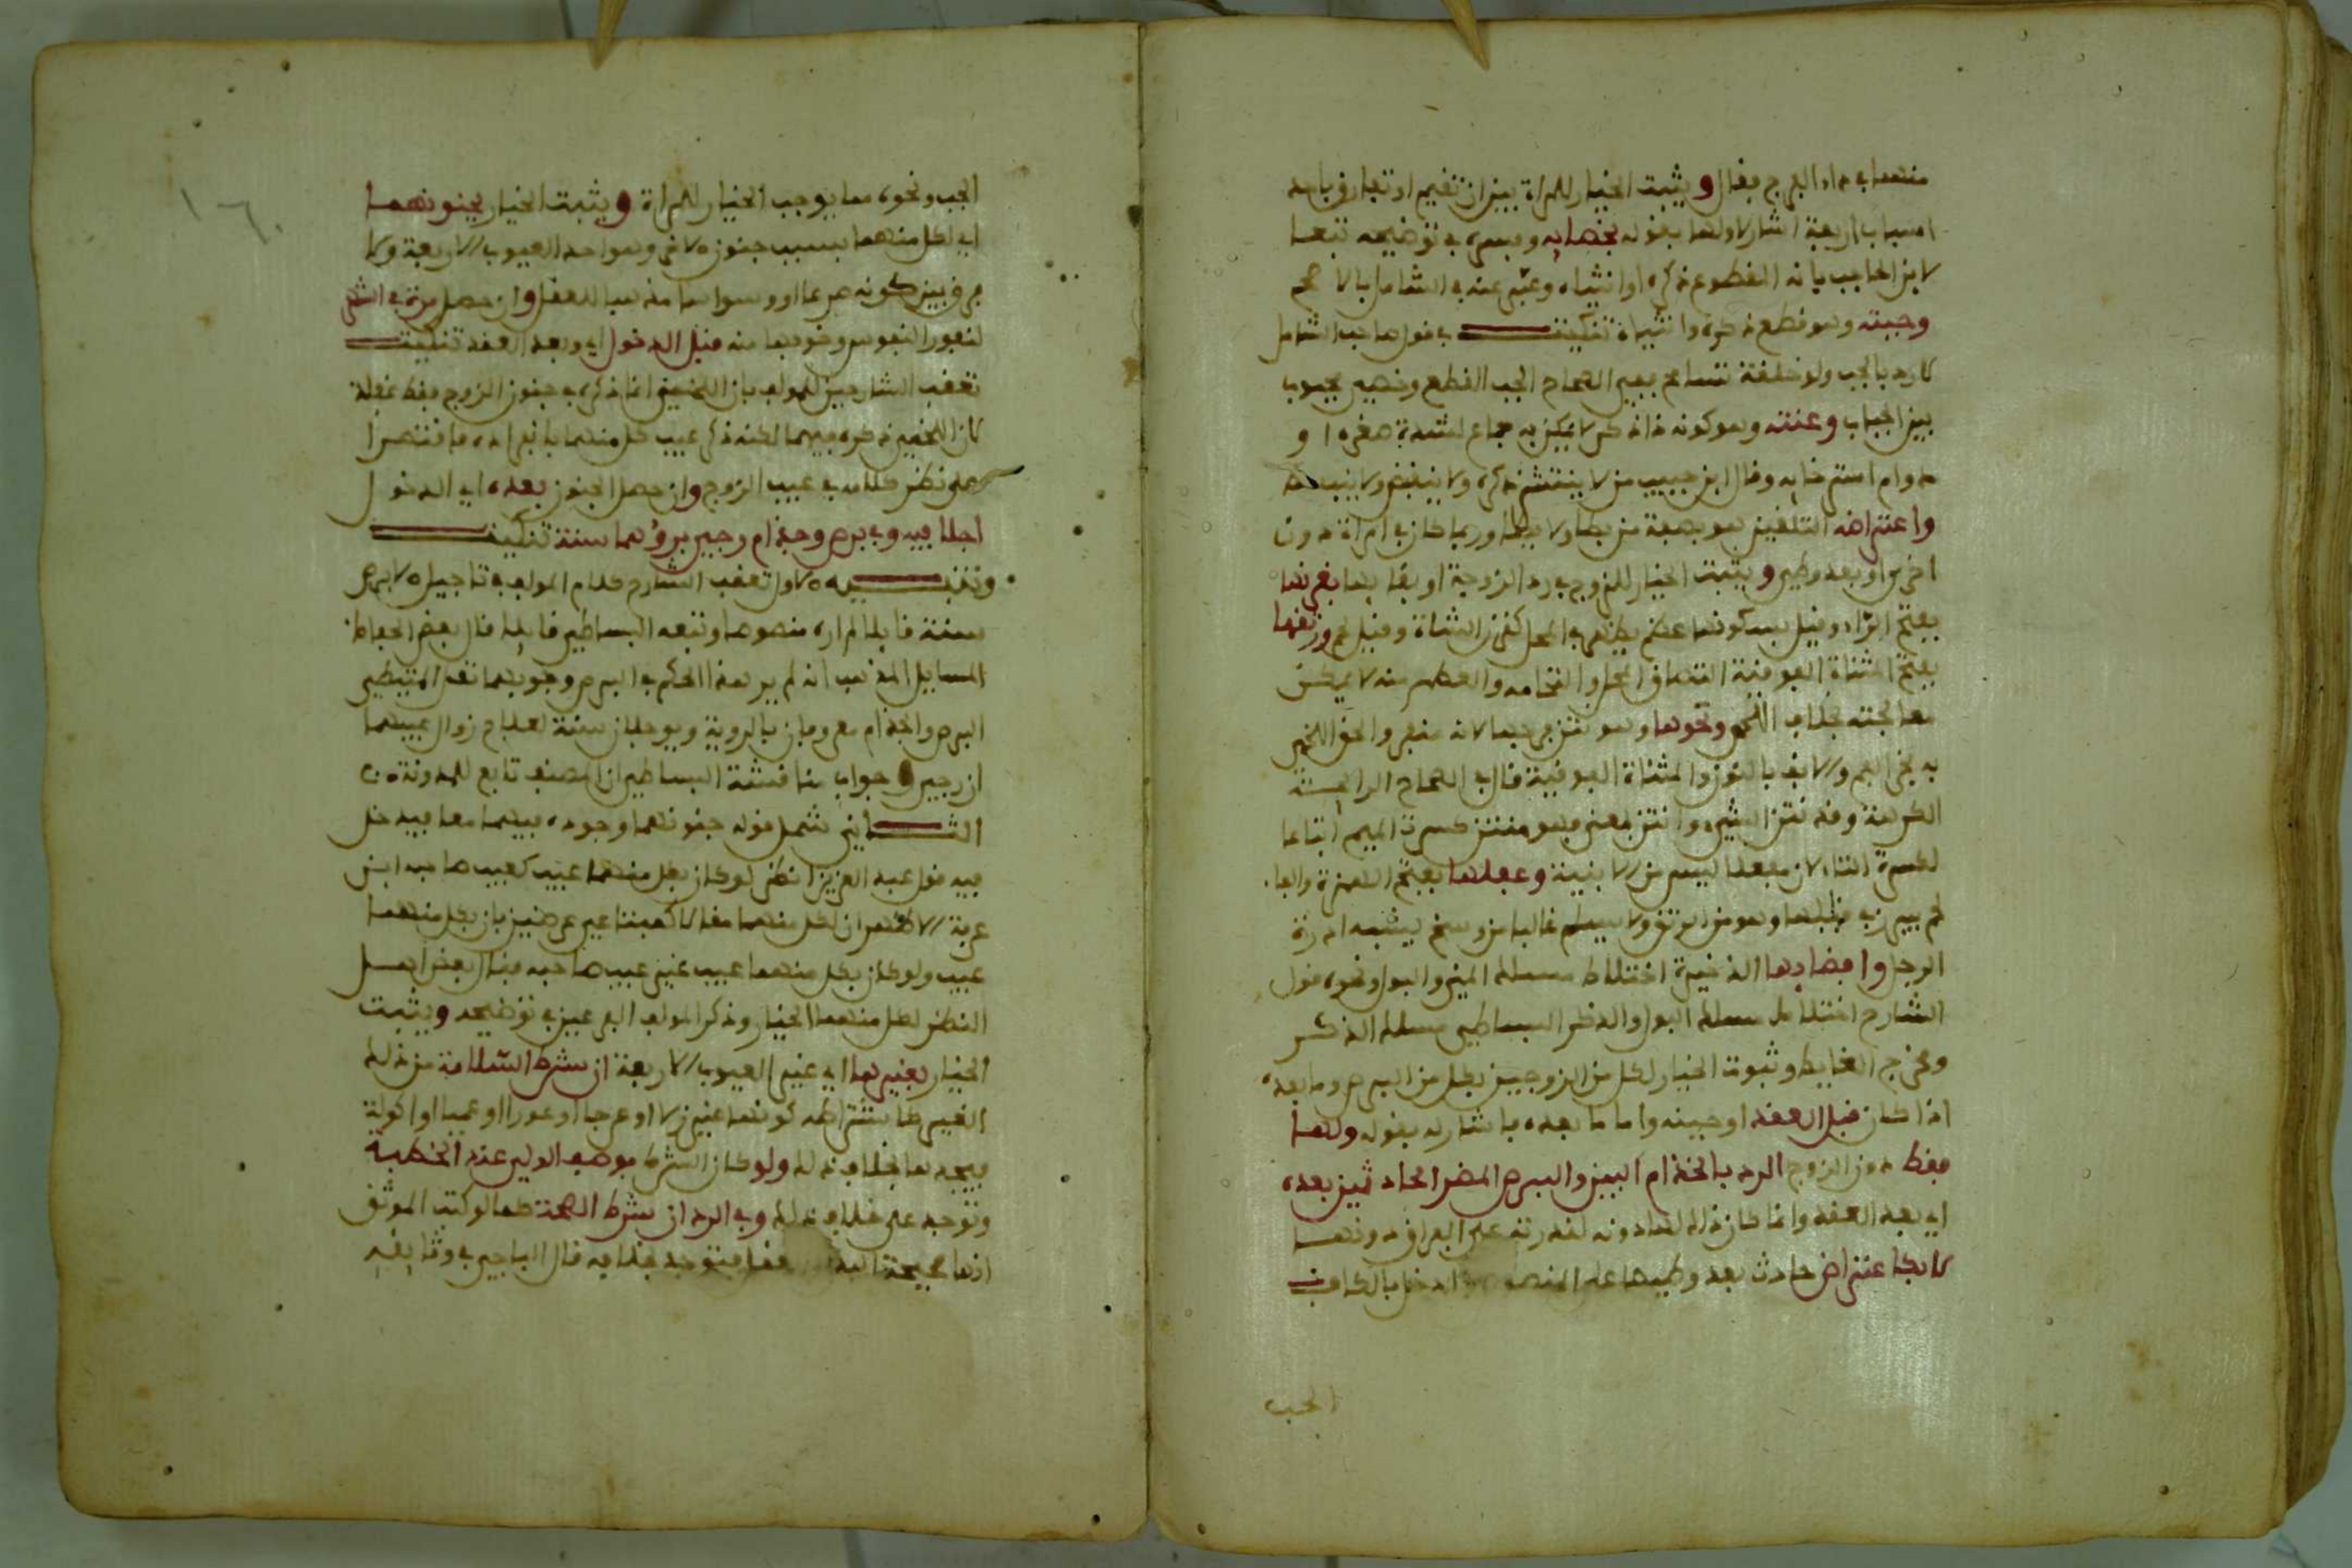 منهما في داء الفرج فقال ويثبت الخيار للمراة بين ان تقيم او تفارق باحد
اسباب اربعة اشار لاولها بقوله بخصايه وفسره في توضيحه تبعا
لابن الحاجب بانه المقطوع ذكره او انثياه وعبر عنه في الشامل بالاصح
وجبه وهو قطع ذكره وانثياه تنكيت في قول صاحب الشامل
كارد بالجب ولو خلقة تسامح ففي الصحاح الجب القطع وخصي مجبوب
بين الجباب وعنته وهو كونه ذا ذكر لا يمكن به جماع لشدة صغره او
دوام استرخايه وقال ابن حبيب من لا ينتشر ذكره ولا ينقبض ولا ينبسط
واعتراضه التلقين هو بصفة من يطا ولا يطا وربما كان في امراة دون
اخرى او بعد وطي ويثبت الخيار للزوج في رد الزوجة او بقايها بقرنها
بفتح الراء وقيل بسكونها عظم يظهر في المحل كقرن الشاة وقيل لحم ورتقها
بفتح المثناة الفوقية التصاق المحل والتحامه والعظم منه لا يمكن
معالجته بخلاف اللحم ونحوها وهو نتن فرجها لانه منفر والحق اللخمي
به نجر الفم والانف بالنون والمثناة الفوقية قال في الصحاح الرايحة
الكريهة وقد نتن الشيء وانتن بمعنى فهو منتن كسرت الميم اتباعا
لكسرة التاء لان مفعلا ليس من الابنية وعفلها بفتح المهملة والفاء
لحم يبرز في قبلها وهو من الرتق ولا يسلم غالبا من رشح يشبه ادرة
الرجل وافضايها الذخيرة اختلاط مسلك المني والبول ونحوه قول
الشارح اختلاط مسلك البول والذكر البساطي مسلك الذكر
ومخرج الغايط وثبوت الخيار لكل من الزوجين بكل من البرص وما بعده
اذا كان قبل العقد او حينه واما ما بعده فاشار له بقوله ولها
فقط دون الزوج الرد بالجذام البين والبرص المضر الحادثين بعده
اي بعد العقد وانما كان ذلك لها دونه لقدرته على الفراق دونها
لا بكاعتراض حادث بعد وطيها على المنصوص وادخل بالكاف
الجب
١٦٠
الجب ونحوه مما يوجب الخيار للمراة ويثبت الخيار بجنونهما
اي لكل منهما بسبب جنون الاخر وهو احد العيوب الاربعة ولا
فرق بين كونه صرعا او وسواسا مذهبا للعقل وان حصل مرة في الشهر
لنفور النفوس وخوفها منه قبل الدخول اي وبعد العقد تنكيت
تعقب الشارحين للمولف بان اللخمي انما ذكره في جنون الزوج فقط غفلة
لان اللخمي ذكره فيهما لكنه ذكر عيب كل منهما بانفراده فاقتصرا
على نظر كلامه في عيب الزوج وان حصل الجنون بعده اي الدخول
اجلا فيه وفي برص وجذام رجي بروهما سنة تنكيت
وتنبيه الاول تعقب الشارح كلام المولف في تاجيل الابرص
سنة قايلا لم اره منصوصا وتبعه البساطي قايلا قال بعض الحفاظ
لمسايل المذهب انه لم ير هذا الحكم في البرص وجوابهما نقل المتيطي
البرص والجذام معروفان بالروية ويوجلان سنة لعلاج زوال عيبهما
ان رجي وجواب مناقشة البساطي ان المصنف تابع للمدونة
الثاني شمل قوله جنونهما وجوده فيهما معا فيدخل
فيه قول عبد العزيز انظر لو كان بكل منهما عيب كعيب صاحبه ابن
عرفة الاظهر ان لكل منهما مقالا كمبتاعي عرضين بان بكل منهما
عيب ولو كان بكل منهما عيب غير عيب صاحبه فقال بعض اهل
النظر لكل منهما الخيار وذكر المولف الفرعين في توضيحه ويثبت
الخيار بغيرها اي غير العيوب الاربعة ان شرط السلامة من ذلك
الغير كاشتراطه كونها غير زلا او عرجا او عورا او عميا او اكولة
فيجدها بخلاف ذلك ولو كان الشرط بوصف الولي عند الخطبة
وتوجد على خلاف ذلك وفي الرد ان شرط الصحة كما لو كتب الموثق
انها صحيحة البدن عقلا فتوجد بخلافه قال الباجي في وثايقه